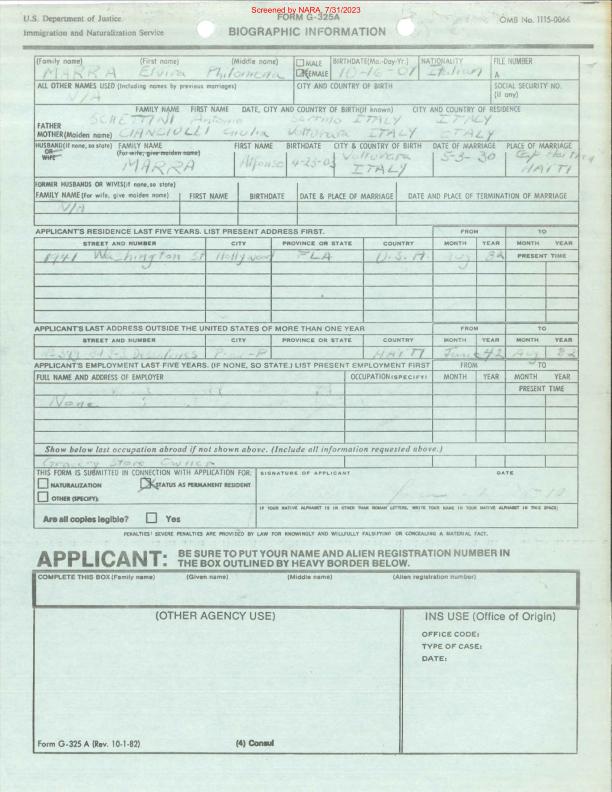 Screened by NARA, 7/31/2023
U.S. Department of Justice
Immigration and Naturalization Service
FORM G-325A
BIOGRAPHIC INFORMATION
OMB No. 1115-0066
(Family name) (First name) (Middle name) MALE FEMALE BIRTHDATE(Mo.-Day-Yr.) NATIONALITY FILE NUMBER
MARRA Elvira Philomena 10-16-01 Italian A
ALL OTHER NAMES USED (Including names by previous marriages) CITY AND COUNTRY OF BIRTH SOCIAL SECURITY NO. (If any)
N/A
FAMILY NAME FIRST NAME DATE, CITY AND COUNTRY OF BIRTH(If known) CITY AND COUNTRY OF RESIDENCE
FATHER SCHETTINI Antonio ITALY ITALY
MOTHER(Maiden name) CIANCIULLI Giulia Volturara ITALY ITALY
HUSBAND(If none, so state) OR WIFE FAMILY NAME (For wife, give maiden name) FIRST NAME BIRTHDATE CITY & COUNTRY OF BIRTH DATE OF MARRIAGE PLACE OF MARRIAGE
MARRA Alfonso 4-23-03 Volturara ITALY 5-3-30 Cap Haitien HAITI
FORMER HUSBANDS OR WIVES(if none,so state)
FAMILY NAME (For wife, give maiden name) FIRST NAME BIRTHDATE DATE & PLACE OF MARRIAGE DATE AND PLACE OF TERMINATION OF MARRIAGE
N/A
APPLICANT'S RESIDENCE LAST FIVE YEARS. LIST PRESENT ADDRESS FIRST. FROM TO
STREET AND NUMBER CITY PROVINCE OR STATE COUNTRY MONTH YEAR MONTH YEAR
1941 Washington St Hollywood FLA U.S.A. Aug 82 PRESENT TIME
APPLICANT'S LAST ADDRESS OUTSIDE THE UNITED STATES OF MORE THAN ONE YEAR FROM TO
STREET AND NUMBER CITY PROVINCE OR STATE COUNTRY MONTH YEAR MONTH YEAR
HAITI June 42 Aug 82
APPLICANT'S EMPLOYMENT LAST FIVE YEARS. (IF NONE, SO STATE.) LIST PRESENT EMPLOYMENT FIRST FROM TO
FULL NAME AND ADDRESS OF EMPLOYER OCCUPATION(SPECIFY) MONTH YEAR MONTH YEAR
PRESENT TIME
None
Show below last occupation abroad if not shown above. (Include all information requested above.)
Grocery Store Owner
THIS FORM IS SUBMITTED IN CONNECTION WITH APPLICATION FOR: SIGNATURE OF APPLICANT DATE
NATURALIZATION STATUS AS PERMANENT RESIDENT
OTHER (SPECIFY):
IF YOUR NATIVE ALPHABET IS IN OTHER THAN ROMAN LETTERS, WRITE YOUR NAME IN YOUR NATIVE ALPHABET IN THIS SPACE)
Are all copies legible? Yes
PENALTIES! SEVERE PENALTIES ARE PROVIDED BY LAW FOR KNOWINGLY AND WILLFULLY FALSIFYING OR CONCEALING A MATERIAL FACT.
APPLICANT: BE SURE TO PUT YOUR NAME AND ALIEN REGISTRATION NUMBER IN
THE BOX OUTLINED BY HEAVY BORDER BELOW.
COMPLETE THIS BOX (Family name) (Given name) (Middle name) (Alien registration number)
(OTHER AGENCY USE) INS USE (Office of Origin)
OFFICE CODE:
TYPE OF CASE:
DATE:
Form G-325 A (Rev. 10-1-82) (4) Consul